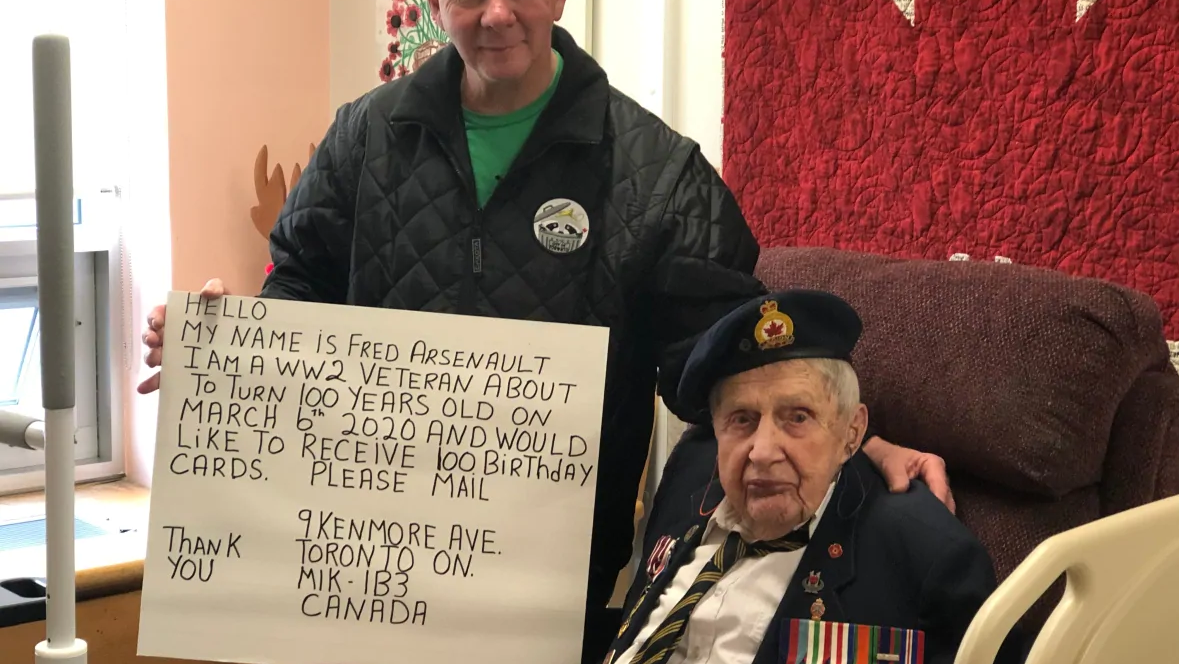 HELLO
MY NAME iS FRED ARSENAULT
I AM A WW2 VETERAN ABOUT
TO TURN 100 YEARS OLD ON
MARCH 6th 2020 AND WOULD
LiKE TO RECEIVE 100 BiRTHDAY
CARDS. PLEASE MAiL
9 KENMORE AVE.
TORONTO ON.
M1K-1B3
CANADA
THANK
YOU